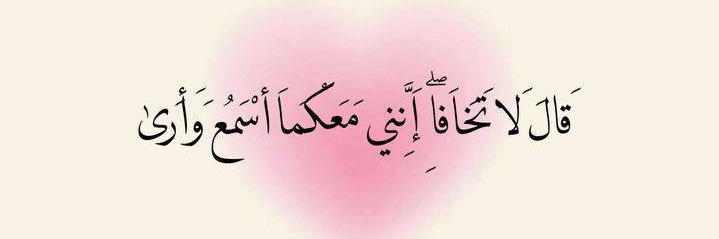 قَالَ لَا تَخَافَاۖ إِنَّنِي مَعَكُمَا أَسْمَعُ وَأَرَىٰ